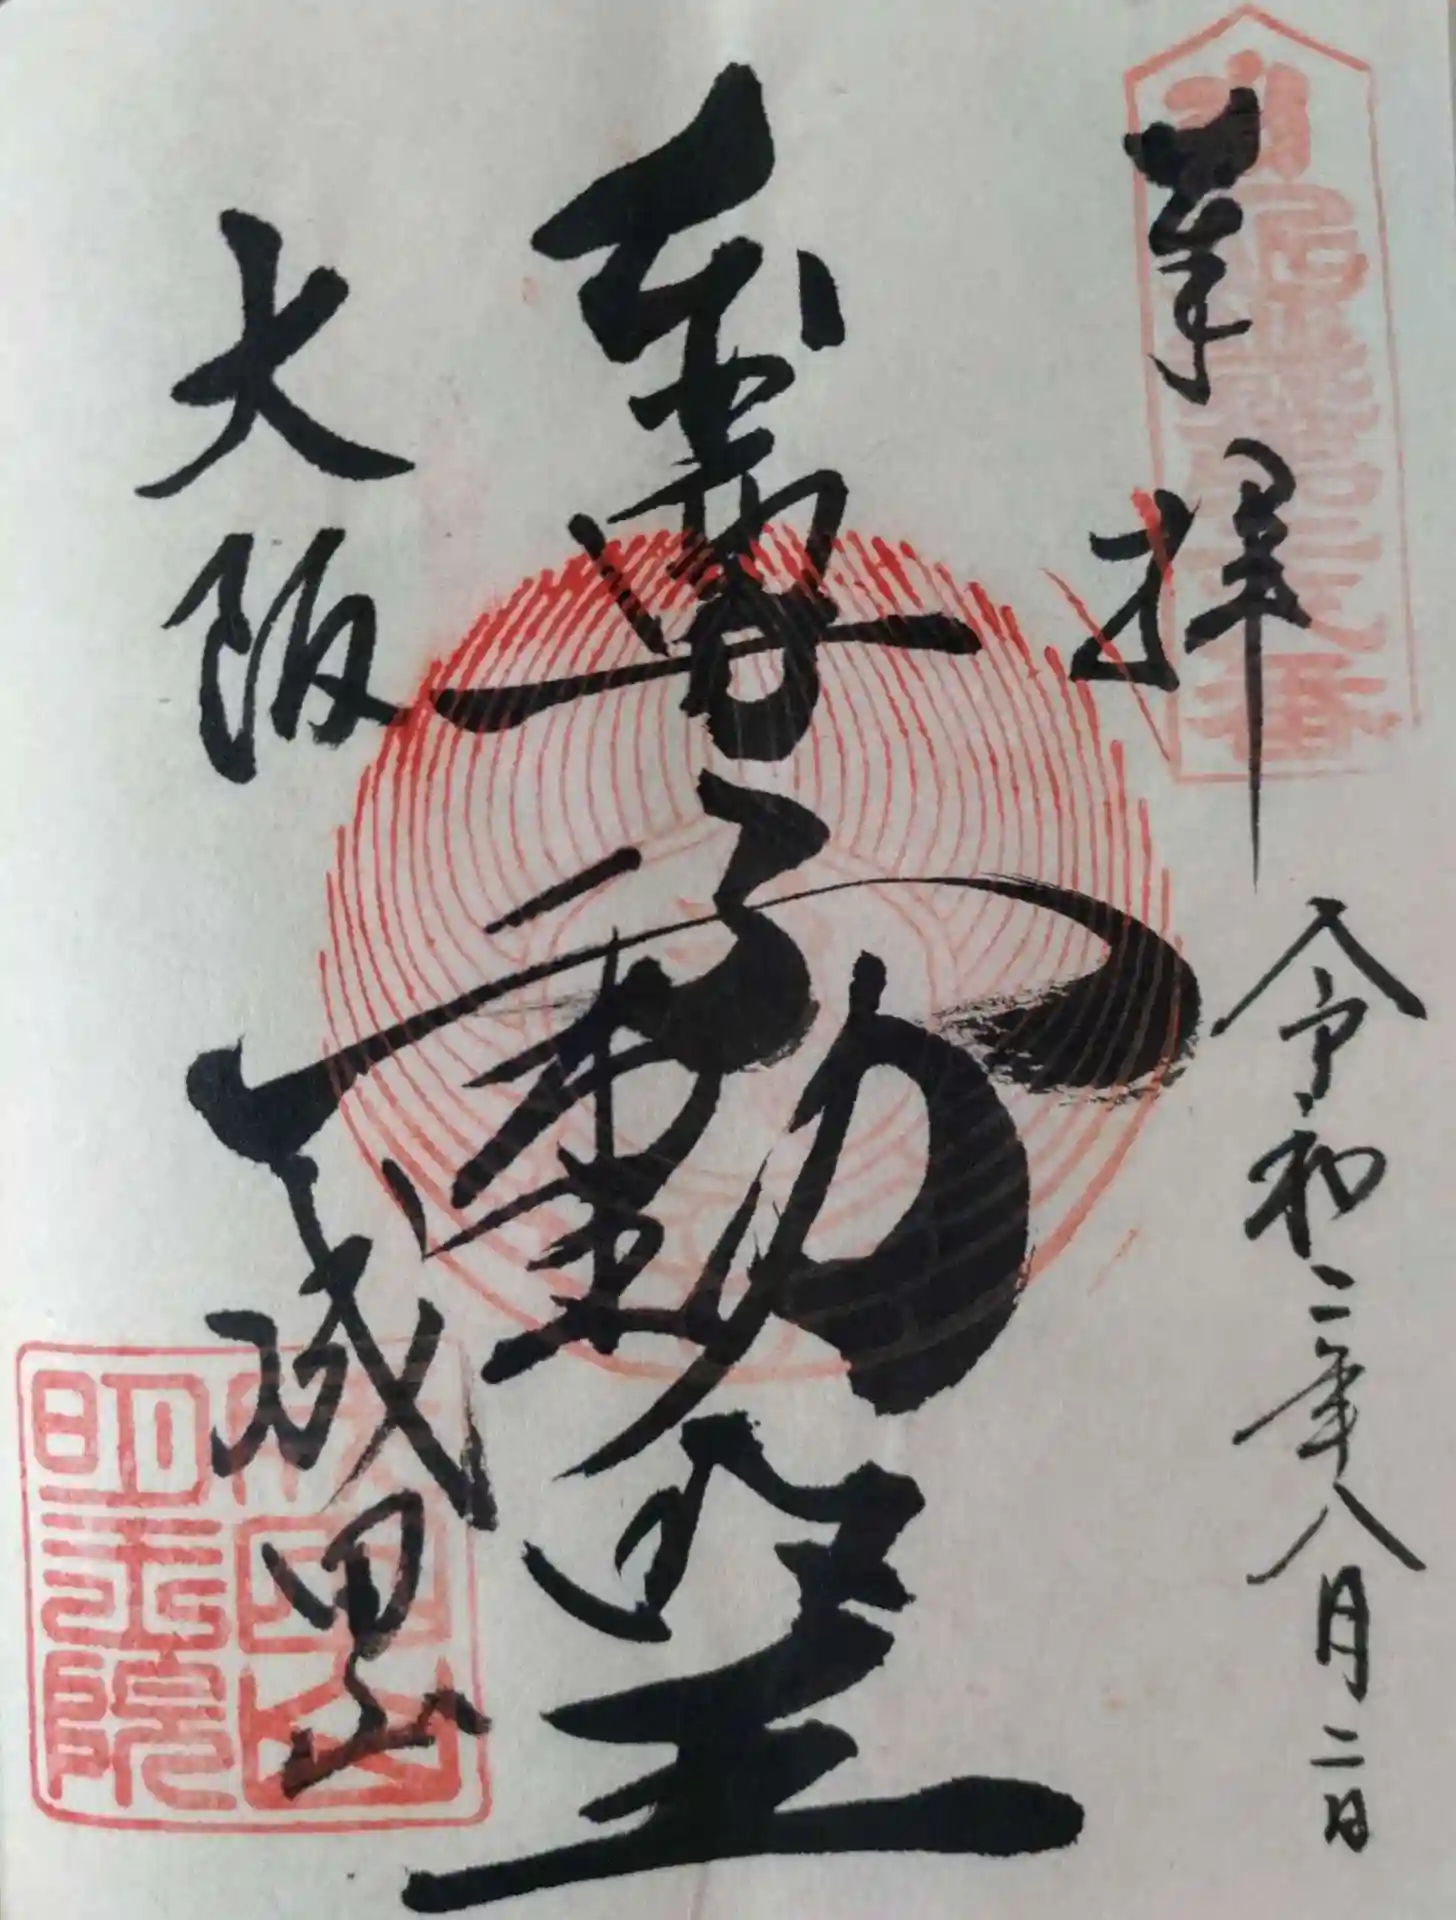 奉拝
令和二年八月二日
本尊不動明王
大阪成田山
成田山
明王院